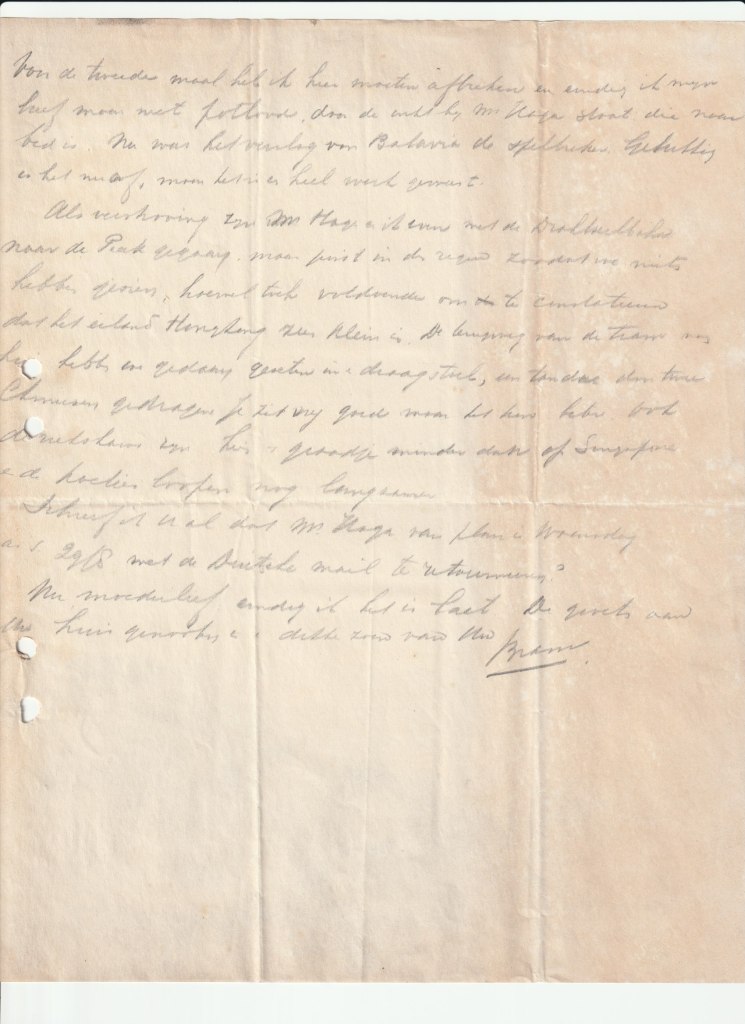 Voor de tweede maal heb ik hier moeten afbreken en eindig ik mijn
brief maar met potlood, daar de inkt bij Mr Haga staat die naar
bed is. Nu was het verslag van Batavia de spelbreker. Gelukkig
is het nu af, maar het is een heel werk geweest.
Als verstrooiing zijn Mr Haga en ik even met de Drahtseilbahn
naar de Peak gegaan, maar juist in de regen zoodat we niets
hebben gezien, hoewel toch voldoende om te constateeren
dat het eiland Hongkong zeer klein is. De terugweg van de tram naar
hebben we gedaan gezeten in draagstoel, een tandoe door twee
Chineezen gedragen. Je zit vrij goed maar het Ook
de rickshaws zijn hier graadje minder dan op Singapore
en de koelies loopen nog langzamer
Schreef ik U al dat Mr Haga van plan is Woensdag
a.s. 29/8 met de Duitsche mail te
Nu moederlief eindig ik het is laat De groeten aan
de huisgenooten en dikke zoen van Uw
Bram.